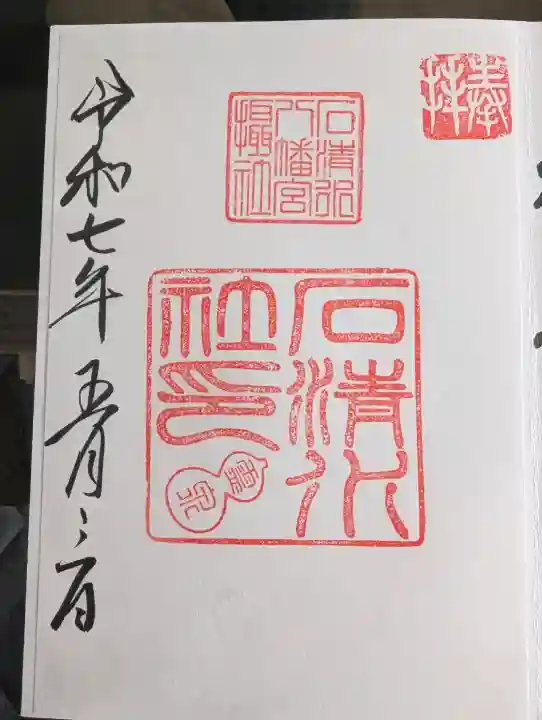 奉拝
石清水
八幡宮
摂社
石清水
社印
霊泉
令和七年五月二日